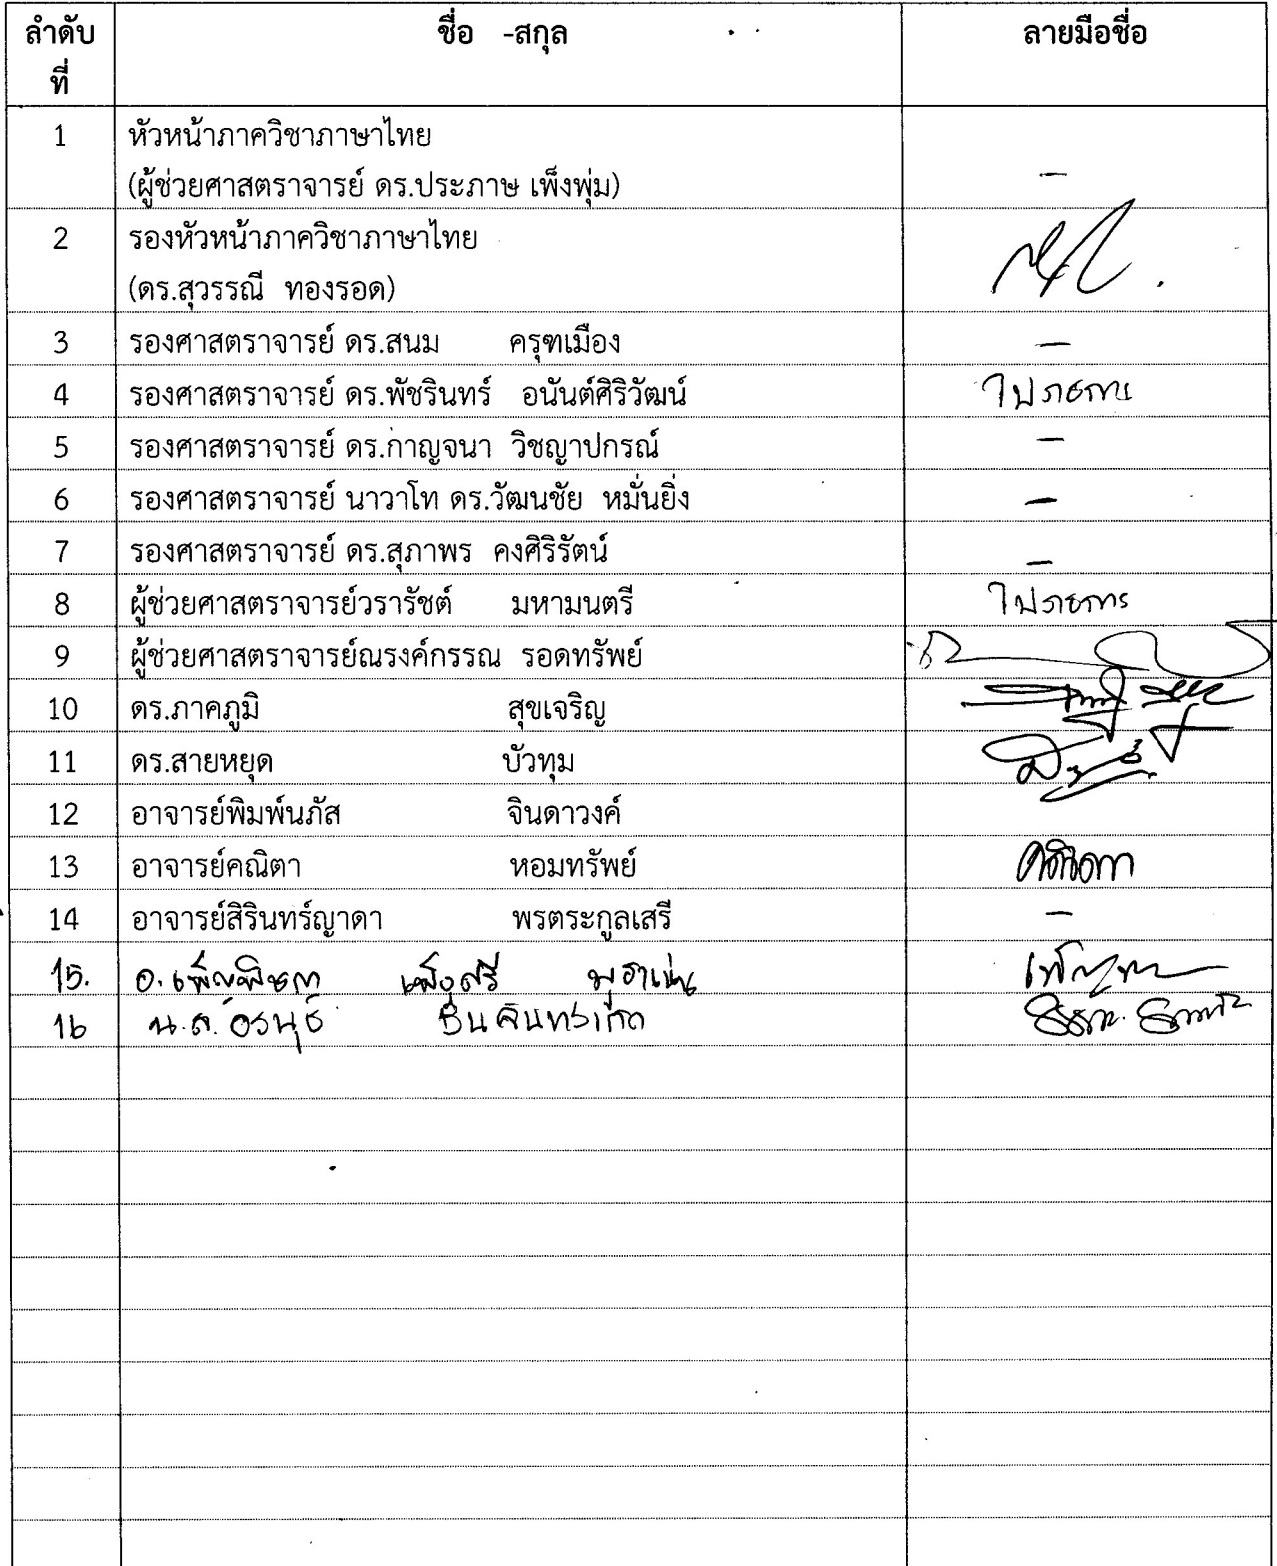 ลำดับ ชื่อ -สกุล ลายมือชื่อ
ที่
1 หัวหน้าภาควิชาภาษาไทย
(ผู้ช่วยศาสตราจารย์ ดร.ประภาษ เพ็งพุ่ม) -
2 รองหัวหน้าภาควิชาภาษาไทย
(ดร.สุวรรณี ทองรอด)
3 รองศาสตราจารย์ ดร.สนม ครุฑเมือง -
4 รองศาสตราจารย์ ดร.พัชรินทร์ อนันต์ศิริวัฒน์ ไปราชการ
5 รองศาสตราจารย์ ดร.กาญจนา วิชญาปกรณ์ -
6 รองศาสตราจารย์ นาวาโท ดร.วัฒนชัย หมั่นยิ่ง -
7 รองศาสตราจารย์ ดร.สุภาพร คงศิริรัตน์ -
8 ผู้ช่วยศาสตราจารย์วรารัชต์ มหามนตรี ไปราชการ
9 ผู้ช่วยศาสตราจารย์ณรงค์กรรณ รอดทรัพย์
10 ดร.ภาคภูมิ สุขเจริญ
11 ดร.สายหยุด บัวทุม
12 อาจารย์พิมพ์นภัส จินดาวงค์
13 อาจารย์คณิตา หอมทรัพย์ คณิตา
14 อาจารย์สิรินทร์ญาดา พรตระกูลเสรี -
15. อ. เพ็ญพิชชา
16 น.ส. อรนุช